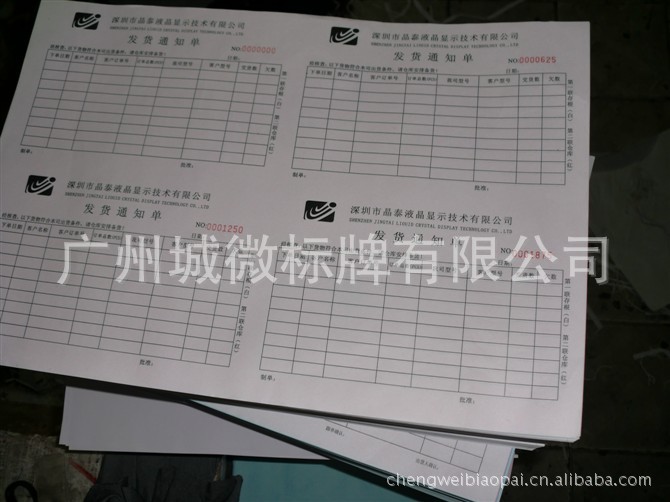 深圳市晶泰液晶显示技术有限公司
SHENZHEN JINGTAI LIQUID CRYSTAL DISPLAY TECHNOLOGY CO.,LTD
发货通知单
NO:0000000
日期:
下单日期 客户名称 客户订单号 客户型号 交货数 欠数
第一联存根(白) 第二联仓库(红)
制单: 批准:
深圳市晶泰液晶显示技术有限公司
SHENZHEN JINGTAI LIQUID CRYSTAL DISPLAY TECHNOLOGY CO.,LTD
发货通知单
NO:0000625
日期:
下单日期 客户名称 客户订单号 客户型号 交货数 欠数
第一联存根(白) 第二联仓库(红)
制单: 批准:
深圳市晶泰液晶显示技术有限公司
SHENZHEN JINGTAI LIQUID CRYSTAL DISPLAY TECHNOLOGY CO.,LTD
发货通知单
NO:0001250
下单日期 客户名称
第二联仓库(红)
制单: 批准:
深圳市晶泰液晶显示技术有限公司
SHENZHEN JINGTAI LIQUID CRYSTAL DISPLAY TECHNOLOGY CO.,LTD
发货通知单
第一联存根(白) 第二联仓库(红)
制单: 批准:
广州城徽标牌有限公司
chengweibiaopai.cn.alibaba.com